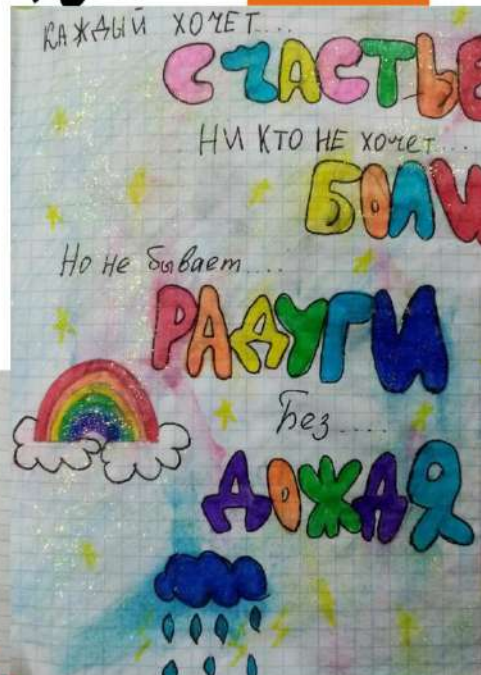 КАЖДЫЙ ХОЧЕТ....
СЧАСТЬЕ
НИ КТО НЕ ХОЧЕТ...
БОЛИ
Но не бывает....
РАДУГИ
Без....
ДОЖДЯ